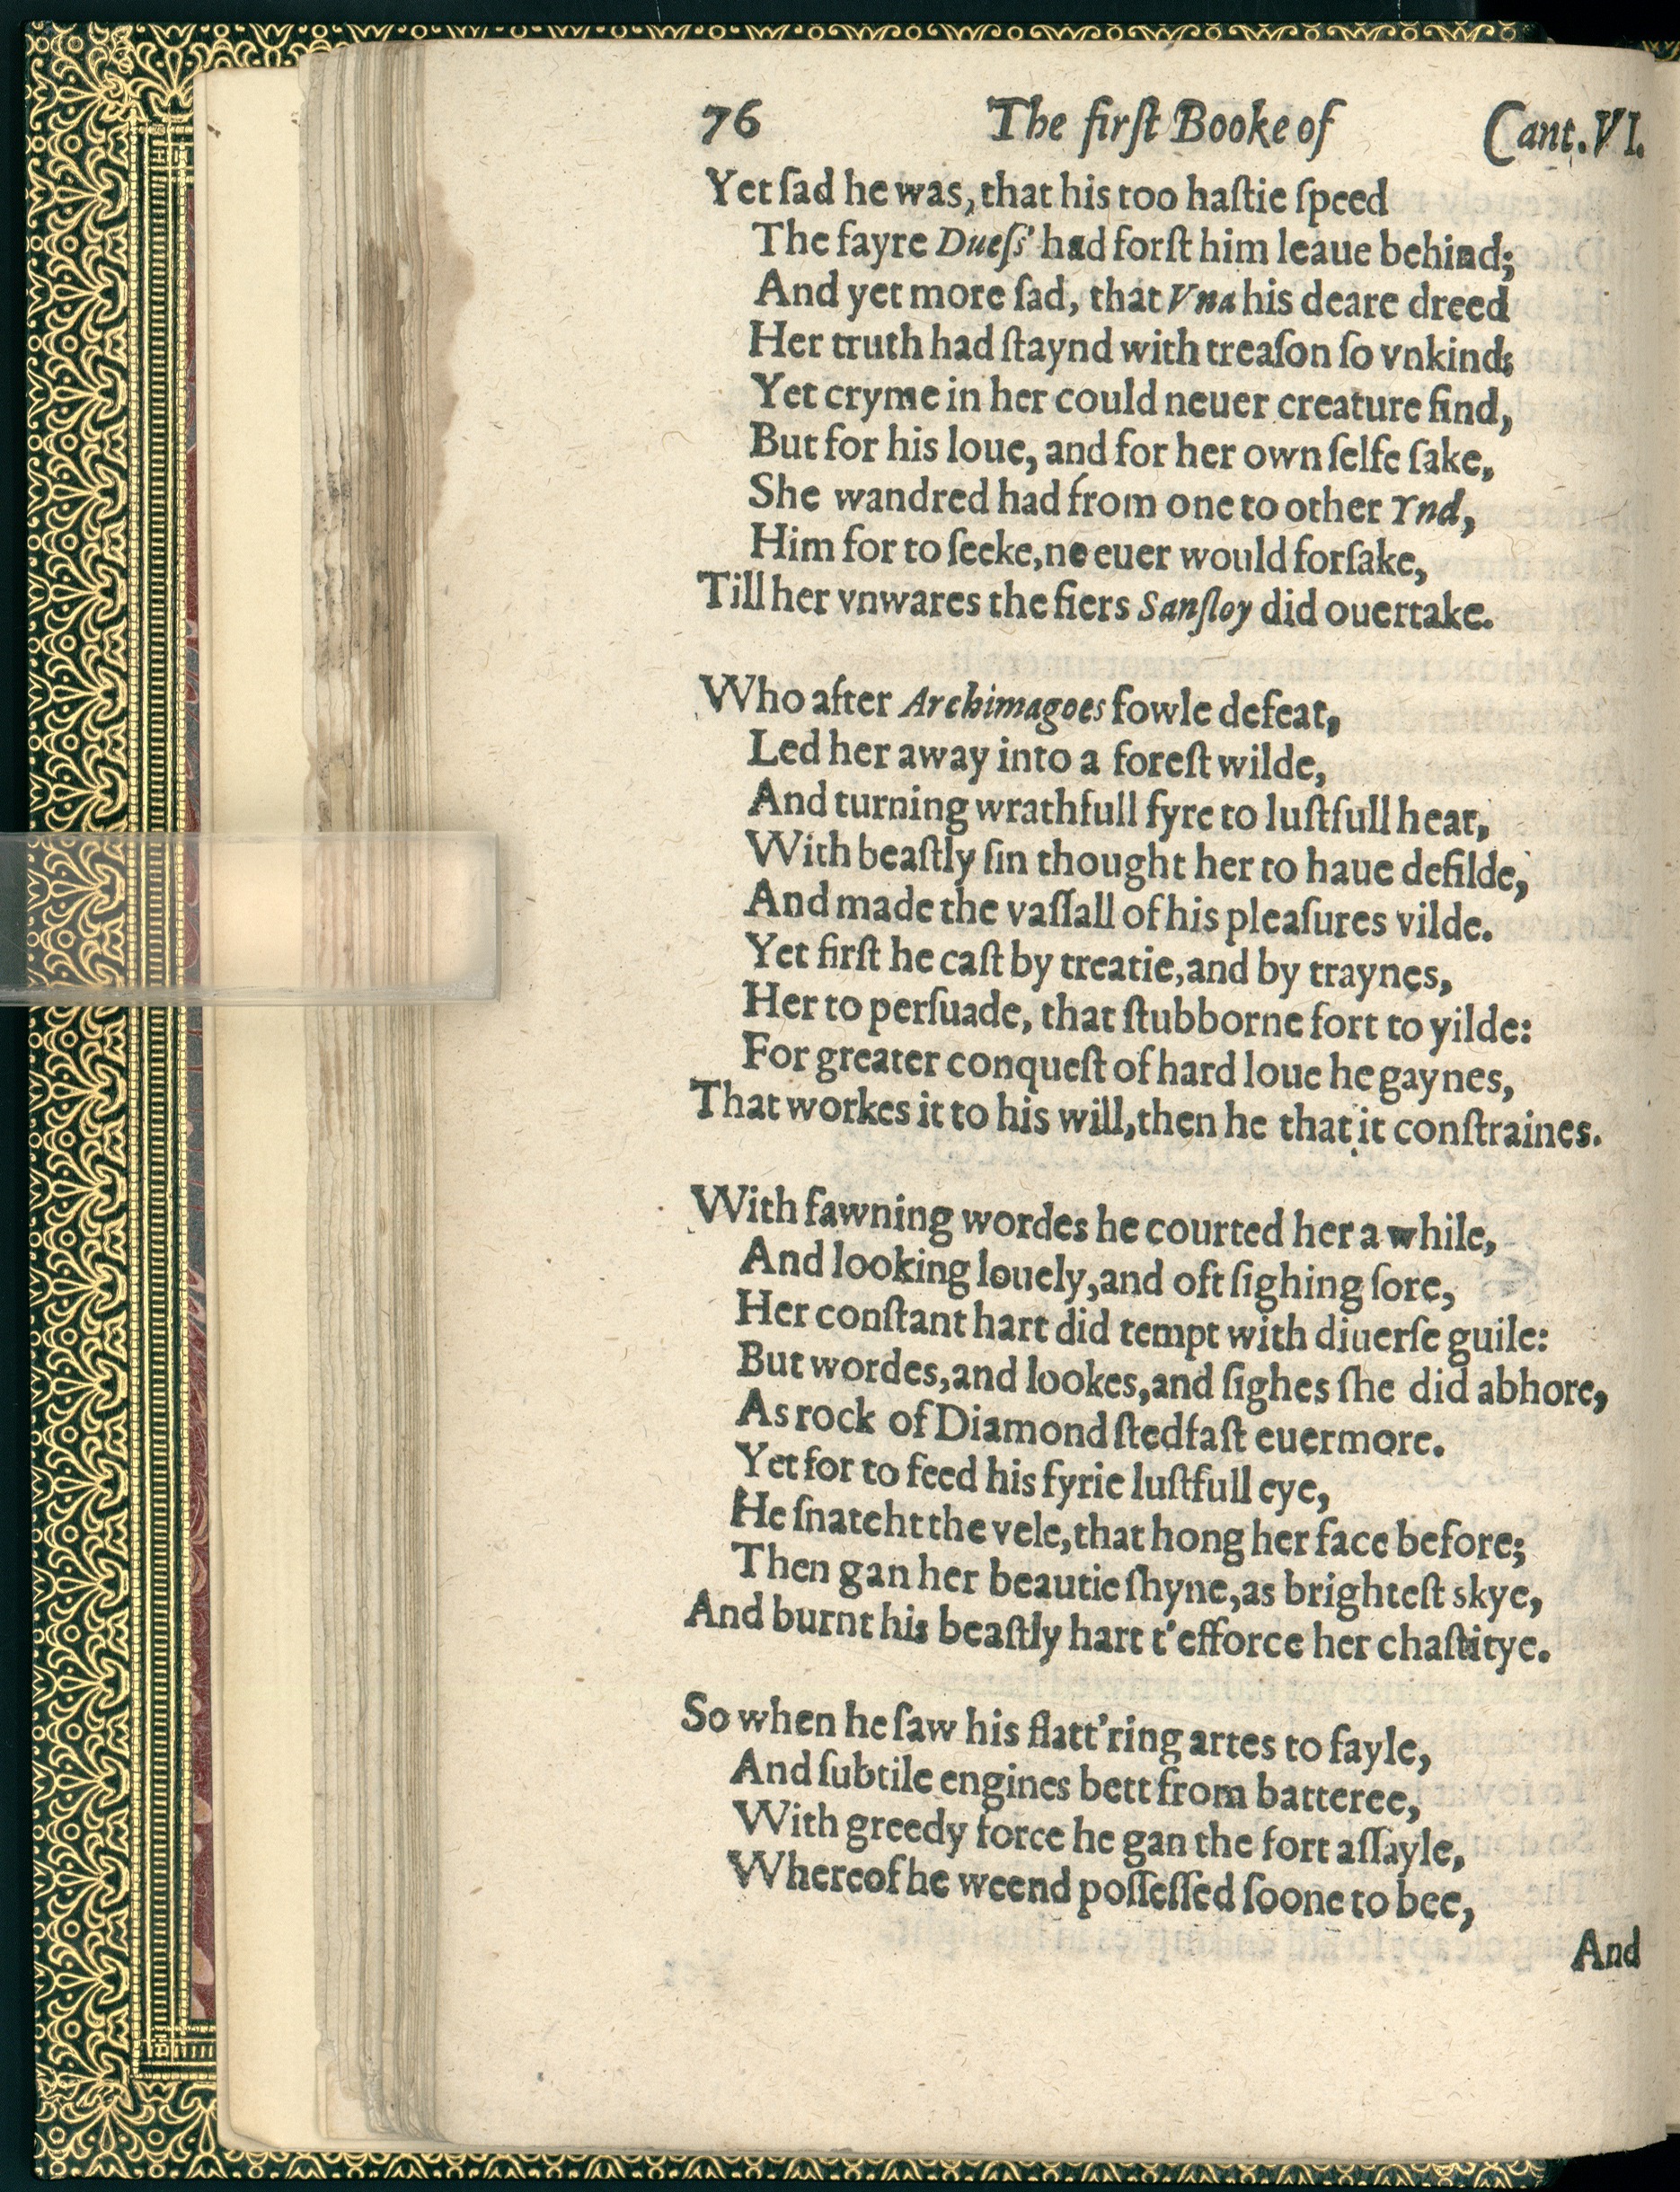 76 The firſt Booke of Cant. VI.
Yet ſad he was, that his too haſtie ſpeed
The fayre Dueſs' had forſt him leaue behind;
And yet more ſad, that Vna his deare dreed
Her truth had ſtaynd with treaſon ſo vnkind;
Yet cryme in her could neuer creature find,
But for his loue, and for her own ſelfe ſake,
She wandred had from one to other Ynd,
Him for to ſeeke, ne euer would forſake,
Till her vnwares the fiers Sanſloy did ouertake.
Who after Archimagoes fowle defeat,
Led her away into a foreſt wilde,
And turning wrathfull fyre to luſtfull heat,
With beaſtly ſin thought her to haue defilde,
And made the vaſſall of his pleaſures vilde.
Yet firſt he caſt by treatie, and by traynes,
Her to perſuade, that ſtubborne fort to yilde:
For greater conqueſt of hard loue he gaynes,
That workes it to his will, then he that it conſtraines.
With fawning wordes he courted her a while,
And looking louely, and oft ſighing ſore,
Her conſtant hart did tempt with diuerſe guile:
But wordes, and lookes, and ſighes ſhe did abhore,
As rock of Diamond ſtedfaſt euermore.
Yet for to feed his fyrie luſtfull eye,
He ſnatcht the vele, that hong her face before;
Then gan her beautie ſhyne, as brighteſt skye,
And burnt his beaſtly hart t'efforce her chaſtitye.
So when he ſaw his flatt'ring artes to fayle,
And ſubtile engines bett from batteree,
With greedy force he gan the fort aſſayle,
Whereof he weend poſſeſſed ſoone to bee,
And